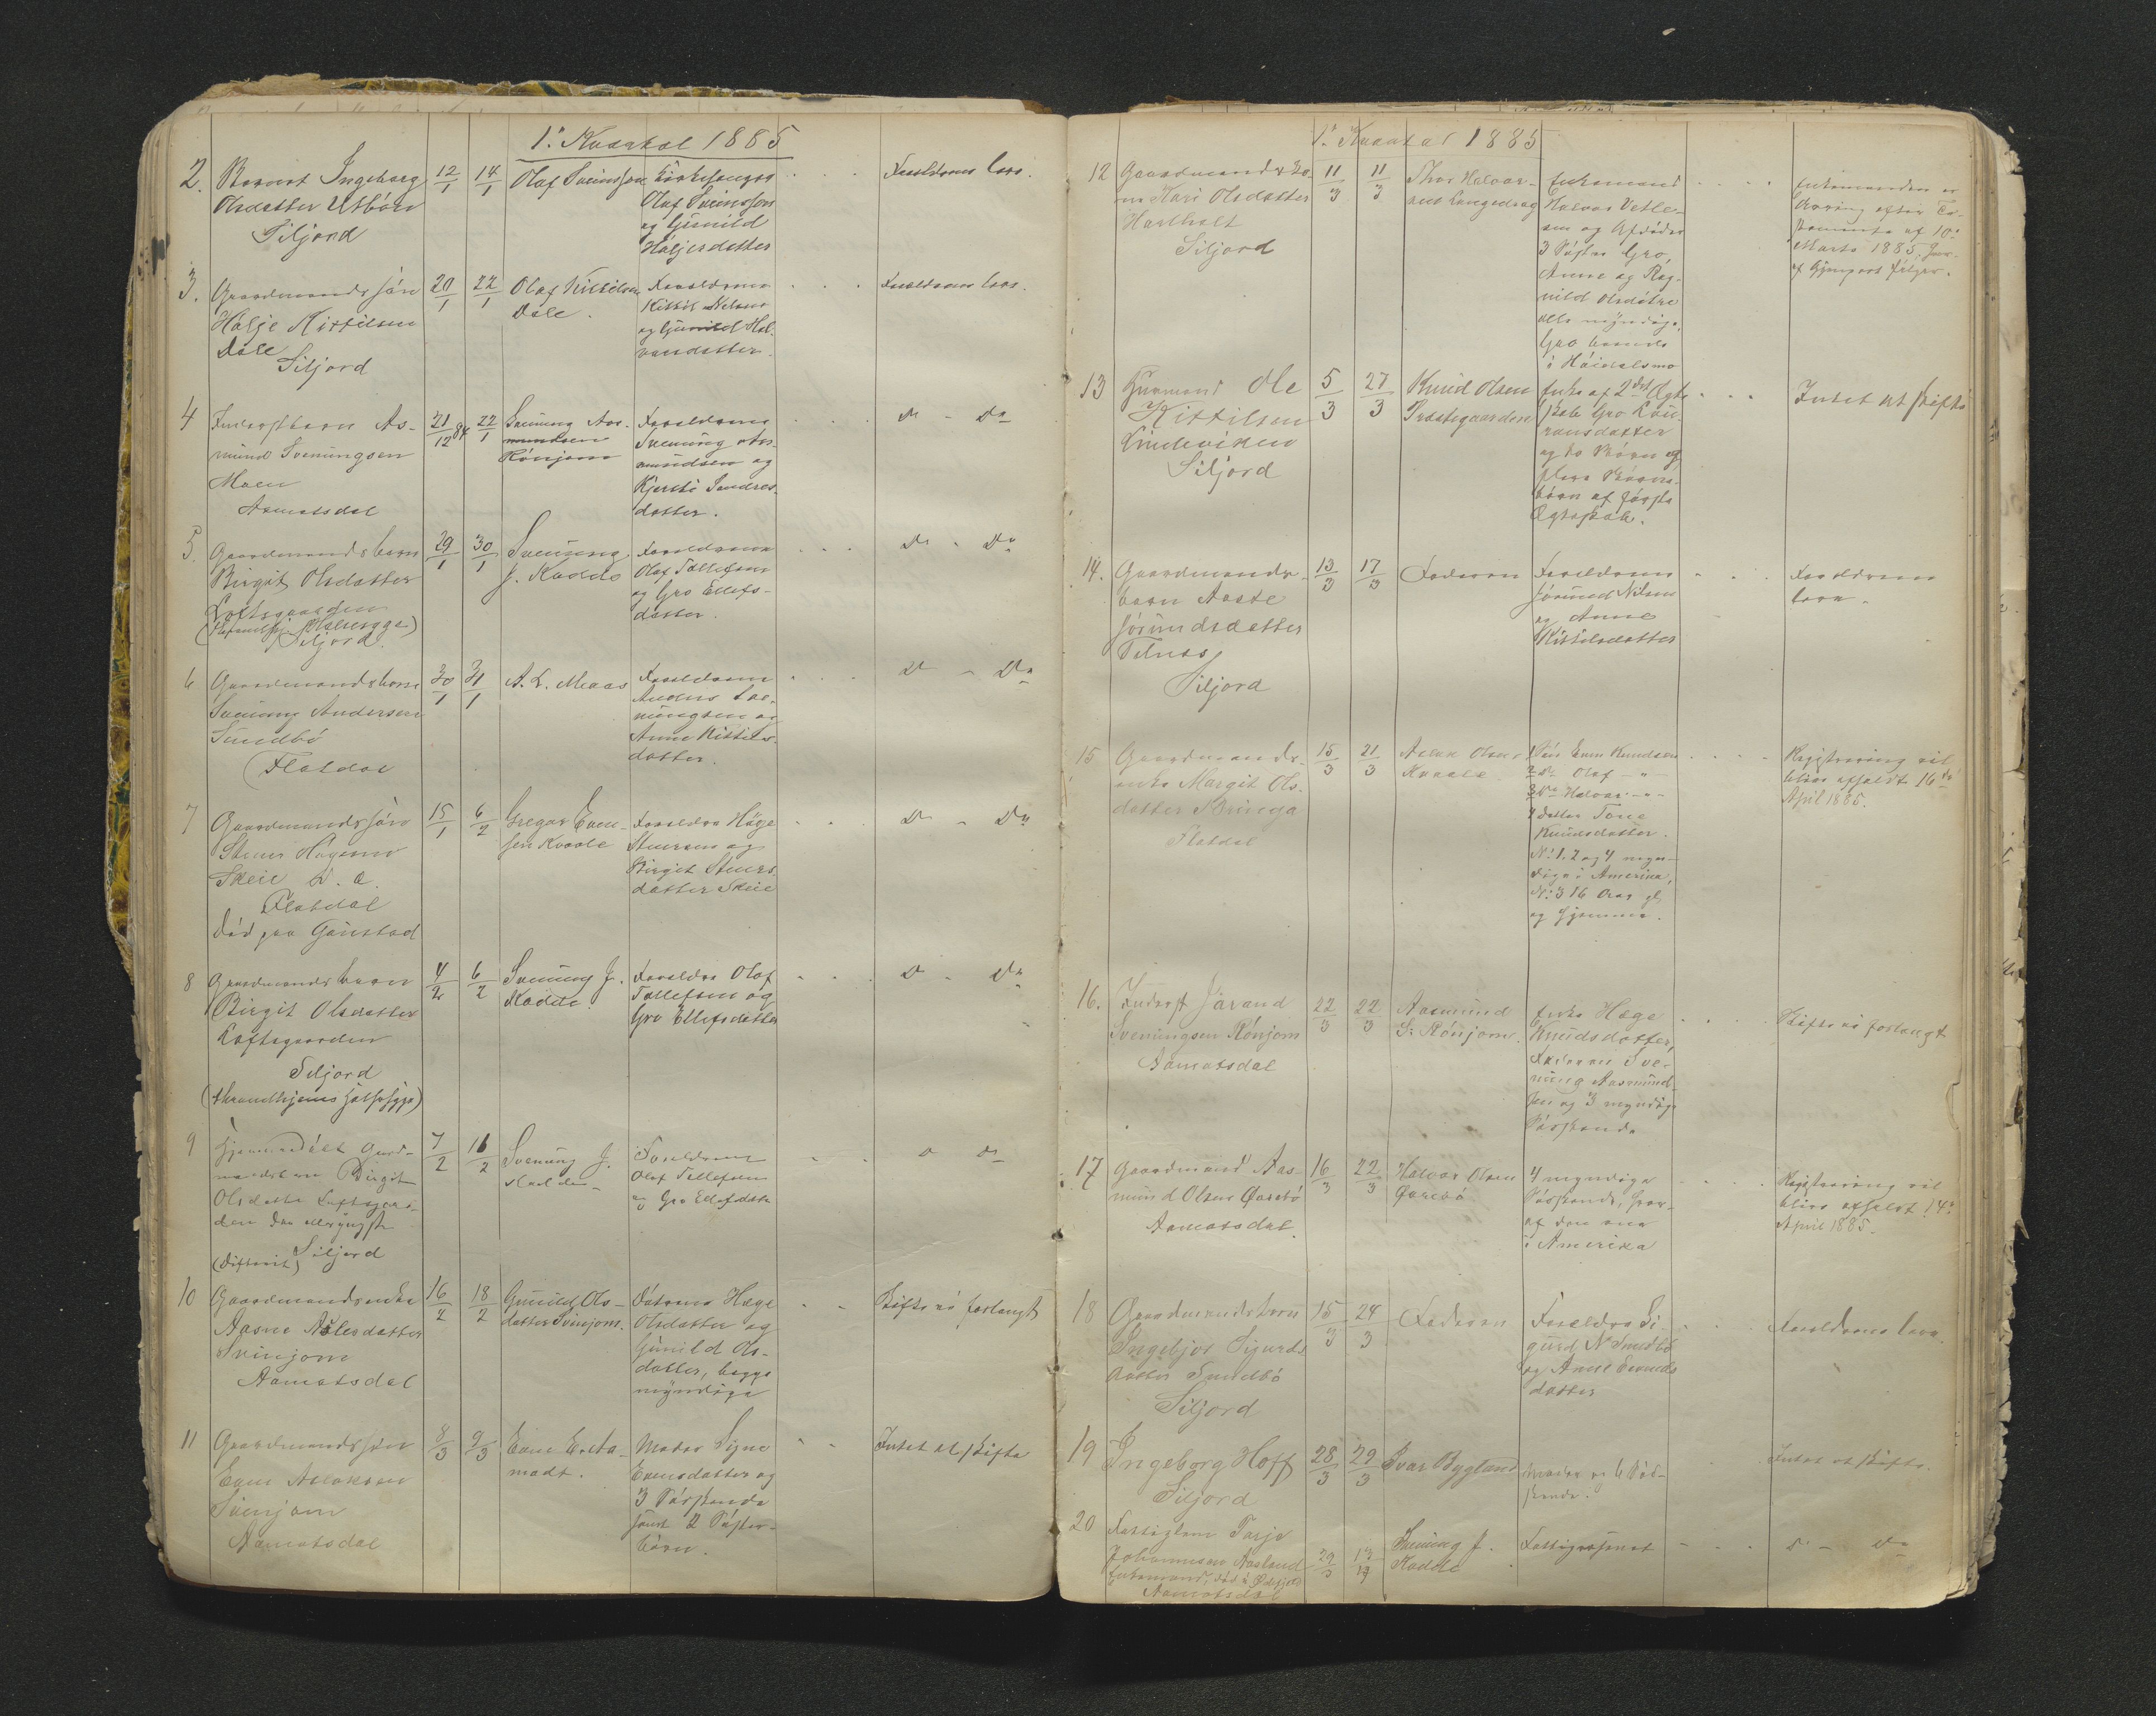 1ᵉ Kvartal 1885
2. Barnet Ingeborg
Olsdatter Utbøen
Siljord
12/1
14/1
Olaf Sveinsson
Kirkesanger
Olaf Sveinsson
og Gunild
Høljesdatter
Forældrene leve.
3. Gaardmands søn
Hølje Kittilsen
Dale
Siljord
20/1
22/1
Olaf Kittilsen
Dale.
Forældrene
Kittil Nilsen
og Gunild Hal-
vorsdatter.
Forældrene leve.
4 Inderstbarn As-
mund Svenungsen
Moen
Aamotsdal
21/12 84
22/1
Svenung Aas-
mundsen
Rønjom
Forældrene
Svenung Aas-
mundsen og
Kjersti Sondres-
datter.
Do - Do
5. Gaardmands barn
Birgit Olsdatter
Loftsgaarden
Siljord.
29/1
30/1
Svenung
J. Kadde
Forældrene
Olaf Tollefsen
og Gro Ellefs-
datter.
Do - Do
6 Gaardmandsbarn
Svenung Andersen
Sundbø
Flatdal
30/1
31/1
A. L. Maas
Forældrene
Anders Sve-
nungsen og
Anne Kittils-
datter.
Do - Do
7 Gaardmandssøn
Steinar Høgesen
Skeie
Flatdal
død paa Gaustad
15/1
6/2
Gregar Even-
sen Kvaale
Forældre Høge
Stenersen og
Birgit Steners-
datter Skeie
Do - Do
8 Gaardmandsbarn
Birgit Olsdatter
Loftsgaarden
Siljord
4/2
6/2
Svenung J.
Kadde
Forældre Olaf
Tollefsen og
Gro Ellefsdatter
Do - Do
9 Hjemmedøbt Gard-
mandsbarn Birgit
Olsdatter Loftsgaar-
den den alleryngste
(Difterit) Siljord
7/2
16/2
Svenung J.
Kadde
Forældrene
Olaf Tollefsen
og Gro Ellefsdatter
Do Do
10 Gaardmandsenke
Aasne Aslesdatter
Svinjom
Aamotsdal
16/2
18/2
Gunild Ols-
datter Svinjom.
Døtrene Hæge
Olsdatter og
Gunild Ols-
datter, begge
myndige
Skifte ei forlangt
11 Gaardmandssøn
Even Aslaksen
Svinjom
Aamotsdal
8/3
9/3
Moder Signe
Evensdatter og
3 Søskende
samt 2 Søster-
børn.
Intet at skifte
1ᵉ Kvartal 1885
12 Gaardmandsko-
ne Kari Olsdatter
Hartholt
Siljord
11/3
11/3
Thor Halvor-
sen Langedrag
Enkemand
Halvor Vetle-
sen og Afdødes
3 Søstre Gro,
Anne og Rag-
nild Olsdøtre
alle myndige,
Gro boende
i Høidalsmo
Enkemanden er
Arving efter Te-
stamente af 10ᵉ
Marts 1885.
13 Husmand Ole
Kittilsen
Lindeviken
Siljord
5/3
27/3
Knud Olsen
Præstegaarden
Enke af 2det Ægte-
skab Gro
og do Børn og
flere Børne-
børn af første
Ægteskab.
Intet at skifte
14. Gaardmands-
barn Aaste
Jørundsdatter
Tilness
Siljord
13/3
17/3
Faderen
Forældrene
Jørund Nilsen
og Anne
Kittilsdatter
Forældrene
leve.
15 Gaardmands-
enke Margit Ols-
datter Skringa
Flatdal
15/3
21/3
Aslak Olsen
Kvaale
1 Søn Even Knudsen
2 Do Olaf - " -
3 Do Halvor - " -
4 Datter Tone
Knudsdatter.
No 1. 2 og 4 myn-
dige i Amerika,
No 3 16 Aar gl
og hjemme.
Registrering vil
blive afholdt 16de
April 1885.
16. Inderst Jørand
Svenungsen Rønjom
Aamotsdal
22/3
22/3
Aasmund
S. Rønjom.
Enke Hæge
Knudsdatter,
Faderen Sve-
nung Aasmund-
sen og 3 myndige
Søskende
Skifte ei forlangt
17 Gaardmand Aas-
mund Olsen Øverbø
Aamotsdal.
16/3
22/3
Halvor Olsen
Øverbø
4 myndige
Søskende, hvor-
af den ene
i Amerika
Registrering vil
blive afholdt 14ᵉ
April 1885.
18 Gaardmandsbarn
Ingebjør Sigurds-
datter Sundbø
Siljord
15/3
24/3
Faderen
Forældre Si-
gurd N. Sundbø
og Anne Evends-
datter
Forældrene leve.
19 Ingeborg Hoff
Siljord
28/3
29/3
Ivar Bygland
Moder og 6 Sød-
skende.
Intet at skifte.
20 Fattiglem Tarje
Johannesen Aasland
Enkemand, død i
Aamotsdal
29/3
Svenung J.
Kadde
Fattigvæsenet
Do - Do